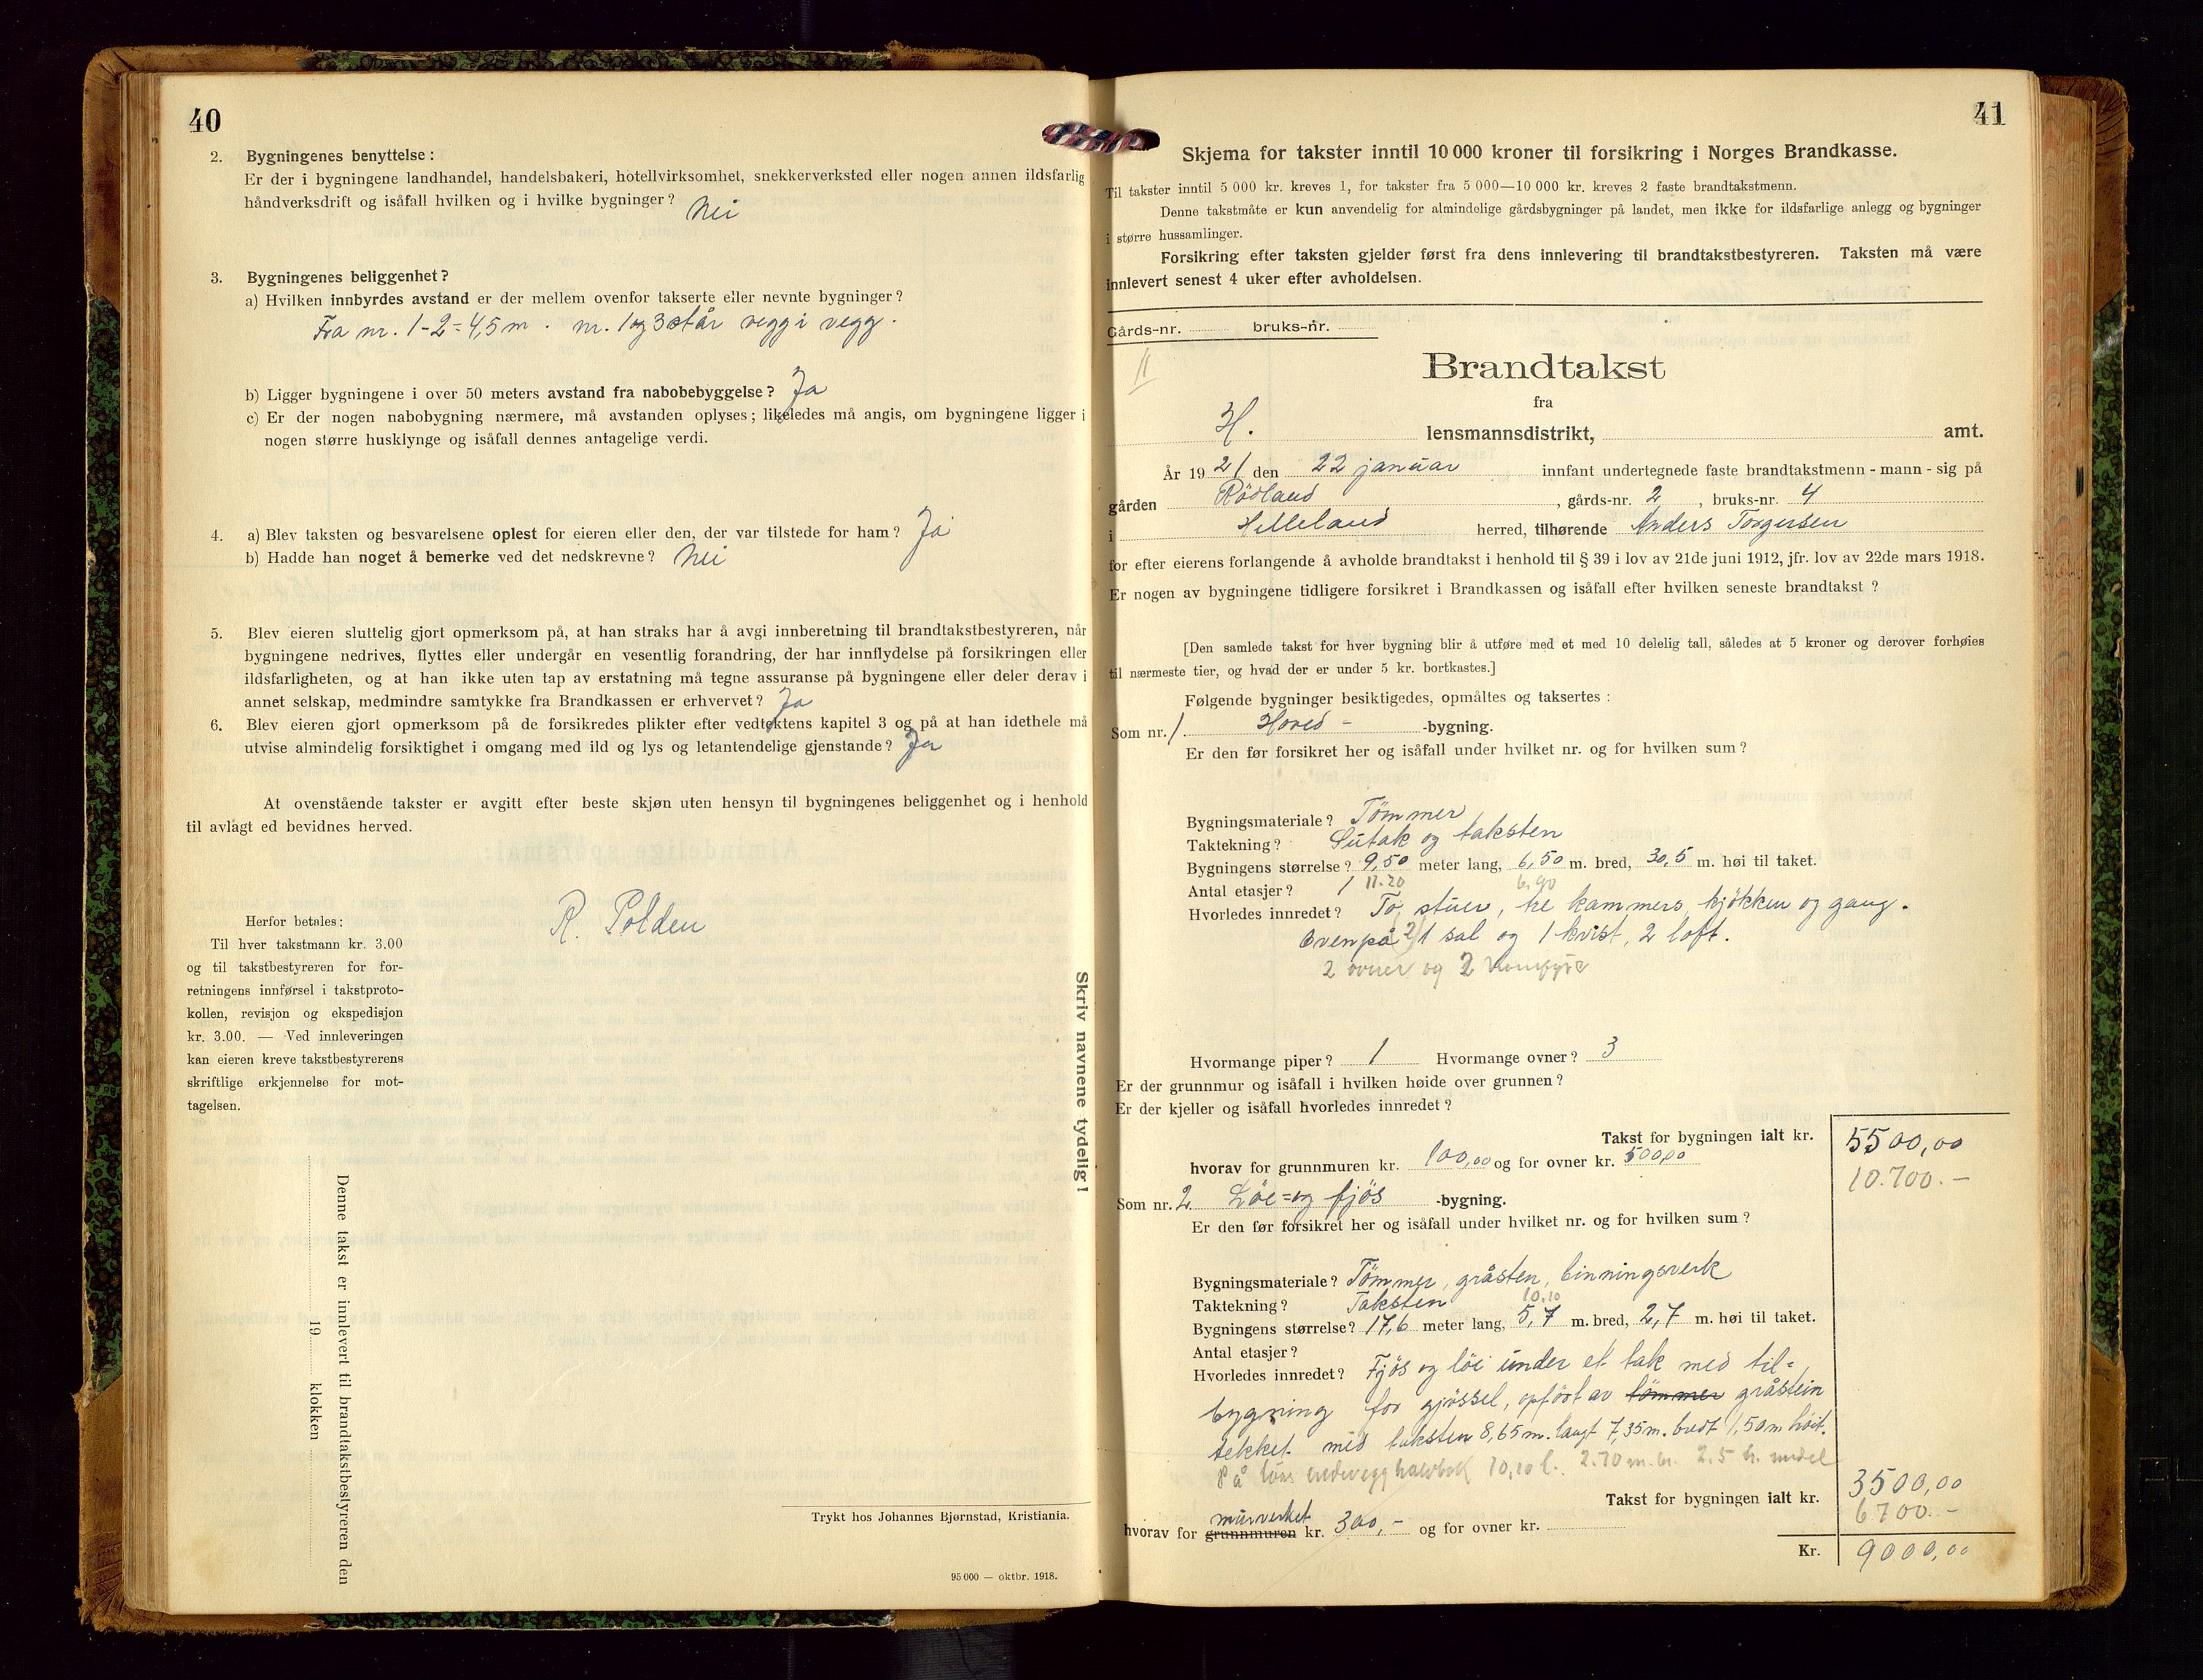 40
2. Bygningenes benyttelse:
Er der i bygningene landhandel, handelsbakeri, hotellvirksomhet, snekkerverksted eller nogen annen ildsfarlig
håndverksdrift og isåfall hvilken og i hvilke bygninger? Nei
3. Bygningenes beliggenhet?
a) Hvilken innbyrdes avstand er der mellem ovenfor takserte eller nevnte bygninger?
Fra nr. 1-2=4,5m. nr. 1 og 3 står vegg i vegg.
b) Ligger bygningene i over 50 meters avstand fra nabobebyggelse? Ja
c) Er der nogen nabobygning nærmere, må avstanden oplyses; likeledes må angis, om bygningene ligger i
nogen større husklynge og isåfall dennes antagelige verdi.
4. a) Blev taksten og besvarelsene oplest for eieren eller den, der var tilstede for ham? Ja
b) Hadde han noget å bemerke ved det nedskrevne? Nei
5. Blev eieren sluttelig gjort opmerksom på, at han straks har å avgi innberetning til brandtakstbestyreren, når
bygningene nedrives, flyttes eller undergår en vesentlig forandring, der har innflydelse på forsikringen eller
ildsfarligheten, og at han ikke uten tap av erstatning må tegne assuranse på bygningene eller deler derav i
annet selskap, medmindre samtykke fra Brandkassen er erhvervet? Ja
6. Blev eieren gjort opmerksom på de forsikredes plikter efter vedtektens kapitel 3 og på at han idethele må
utvise almindelig forsiktighet i omgang med ild og lys og letantendelige gjenstande? Ja
At ovenstående takster er avgitt efter beste skjøn uten hensyn til bygningenes beliggenhet og i henhold
til avlagt ed bevidnes herved.
R. Polden
Herfor betales:
Til hver takstmann kr. 3.00
og til takstbestyreren for for-
retningens innførsel i takstproto-
kollen, revisjon og ekspedisjon
kr. 3.00. — Ved innleveringen
kan eieren kreve takstbestyrerens
skriftlige erkjennelse for mot-
tagelsen.
Denne takst er innlevert til brandtakstbestyreren den
19 klokken
Skriv navnene tydelig!
Trykt hos Johannes Bjørnstad, Kristiania.
95 000 — oktbr. 1918.
41
Skjema for takster inntil 10 000 kroner til forsikring i Norges Brandkasse.
Til takster inntil 5 000 kr. kreves 1, for takster fra 5 000—10 000 kr. kreves 2 faste brandtakstmenn.
Denne takstmåte er kun anvendelig for almindelige gårdsbygninger på landet, men ikke for ildsfarlige anlegg og bygninger
i større hussamlinger.
Forsikring efter taksten gjelder først fra dens innlevering til brandtakstbestyreren. Taksten må være
innlevert senest 4 uker efter avholdelsen.
Gårds-nr. bruks-nr.
11
Brandtakst
fra
H. lensmannsdistrikt, amt.
År 1921 den 22 januar innfant undertegnede faste brandtakstmenn - mann - sig på
gården Rödland, gårds-nr. 2, bruks-nr. 4
i Helleland herred, tilhørende Anders Torgersen
for efter eierens forlangende å avholde brandtakst i henhold til § 39 i lov av 21de juni 1912, jfr. lov av 22de mars 1918.
Er nogen av bygningene tidligere forsikret i Brandkassen og isåfall efter hvilken seneste brandtakst?
[Den samlede takst for hver bygning blir å utføre med et med 10 delelig tall, således at 5 kroner og derover forhøies
til nærmeste tier, og hvad der er under 5 kr. bortkastes.]
Følgende bygninger besiktigedes, opmåltes og taksertes:
Som nr. 1 Hoved- -bygning.
Er den før forsikret her og isåfall under hvilket nr. og for hvilken sum?
Bygningsmateriale? Tömmer
Taktekning? Sutak og taksten
Bygningens størrelse? 9,50 meter lang, 6,50 m. bred, 30,5 m. høi til taket.
Antal etasjer? 1 11.20 6.90
Hvorledes innredet? To stuer, tre kammers, kjökken og gang.
Ovenpå 2 1 sal og 1 kvist, 2 loft.
2 ovner og 2 komfyre
Hvormange piper? 1 Hvormange ovner? 3
Er der grunnmur og isåfall i hvilken høide over grunnen?
Er der kjeller og isåfall hvorledes innredet?
Takst for bygningen ialt kr. 5500,00
hvorav for grunnmuren kr. 100,00 og for ovner kr. 500,00
10.700.-
Som nr. 2 Löe= og fjös -bygning.
Er den før forsikret her og isåfall under hvilket nr. og for hvilken sum?
Bygningsmateriale? Tömmer, gråsten, binningsverk
Taktekning? Taksten 10,10
Bygningens størrelse? 17,6 meter lang, 5,7 m. bred, 2,7 m. høi til taket.
Antal etasjer?
Hvorledes innredet? Fjös og löe under et tak med til=
bygning for gjössel, opfört av tömmer gråstein
tekket med taksten 8,65 m. langt 7,35 m. bredt 1,50 m höit.
På löns endevegg halvtak 10,10 l. 2.70 m. br. 2.5 h. midel
Takst for bygningen ialt kr. 3500,00
6700.-
murverket
hvorav for grunnmuren kr. 300,- og for ovner kr.
Kr. 9000,00